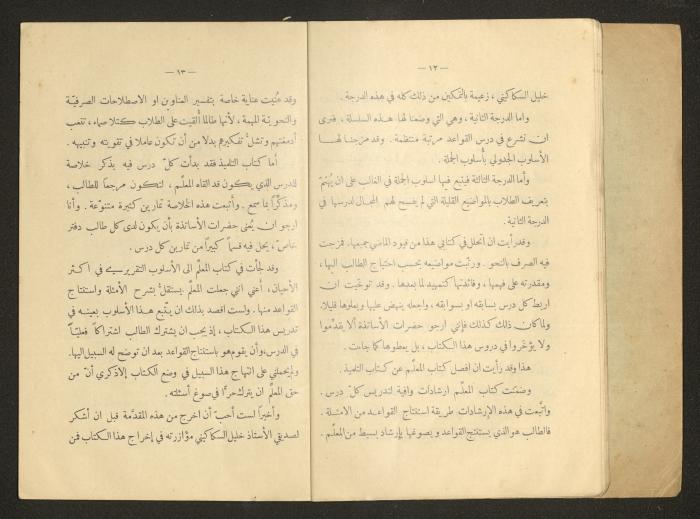 — ١٢ —
خليل السكاكيني ، زعيمة بالتمكين من ذلك كله في هذه الدرجة .
واما الدرجة الثانية ، وهي التي وضعنا لها هذه السلسلة ، فنرى
ان نشرع في درس القواعد مرتبة منتظمة . وقد مزجنا لها
الأسلوب الجدولي بأسلوب الجملة .
وأما الدرجة الثالثة فيتبع فيها اسلوب الجملة في الغالب على ان يُهتمّ
بتعريف الطلاب بالمواضيع القليلة التي لم يفسح لهم المجال لدرسها في
الدرجة الثانية .
وقد رأيت ان اتحلل في كتابي هذا من قيود الماضي جميعها . فمزجت
فيه الصرف بالنحو . ورتّبت مواضيعه بحسب احتياج الطالب اليها ،
ومقدرته على فهمها ، وفائدتها كتمهيد لما بعدها . وقد توخّيت ان
اربط كل درس بسابقه او بسوابقه ، واجعله ينهض عليها ويعلوها قليلا.
ولما كان ذلك كذلك فإنني ارجو حضرات الأساتذة ألا يقدّموا
ولا يؤخّروا في دروس هذا الكتاب ، بل يعطوها كما جاءت .
هذا وقد رأيت ان افصل كتاب المعلّم عن كتاب التلميذ .
وضمّنت كتاب المعلّم ارشادات وافية لتدريس كلّ درس .
واتّبعت في هذه الإرشادات طريقة استنتاج القواعد من الامثلة .
فالطالب هو الذي يستنتج القواعد ويصوغها بإرشاد بسيط من المعلّم .
— ١٣ —
وقد عُنيت عناية خاصة بتفسير العناوين او الاصطلاحات الصرفيّة
والنحويّة المهمة ، لأنها طالما أُلقيت على الطلاب ككتلا صماء ، تتعب
أدمغتهم وتشلّ تفكيرهم بدلا من أن تكون عاملا في تقويته وتنبيهه .
أما كتاب التلميذ فقد بدأت كلّ درس فيه بذكر خلاصة
للدرس الذي يكون قد القاه المعلّم ، لتكون مرجعًا للطالب ،
ومذكّرًا بما سمع . وأتبعت هذه الخلاصة تمارين كثيرة متنوّعة . وأنا
ارجو ان يُعنى حضرات الأساتذة بأن يكون لدى كل طالب دفتر
خاصّ ، يحلّ فيه قسماً كبيراً من تمارين كل درس .
وقد لجأت في كتاب المعلّم الى الأسلوب التقريري في اكثر
الأحيان ، أعني انني جعلت المعلّم يستقلّ بشرح الأمثلة واستنتاج
القواعد منها . ولست اقصد بذلك ان يتّبع هذا الأسلوب بعينه في
تدريس هذا الكتاب ، إذ يجب ان يشترك الطالب اشتراكاً فعليًّا
في الدرس ، وأن يقوم هو باستنتاج القواعد بعد ان توضح له السبيل اليها.
ولم يحملني على انتهاج هذا السبيل في وضع الكتاب إلا ذكري أنّ من
حق المعلّم ان يترك حرًّا في صوغ أسئلته .
وأخيراً لست أحبّ أن اخرج من هذه المقدّمة قبل ان أشكر
لصديقي الأستاذ خليل السكاكيني مؤازرته في إخراج هذا الكتاب فمن